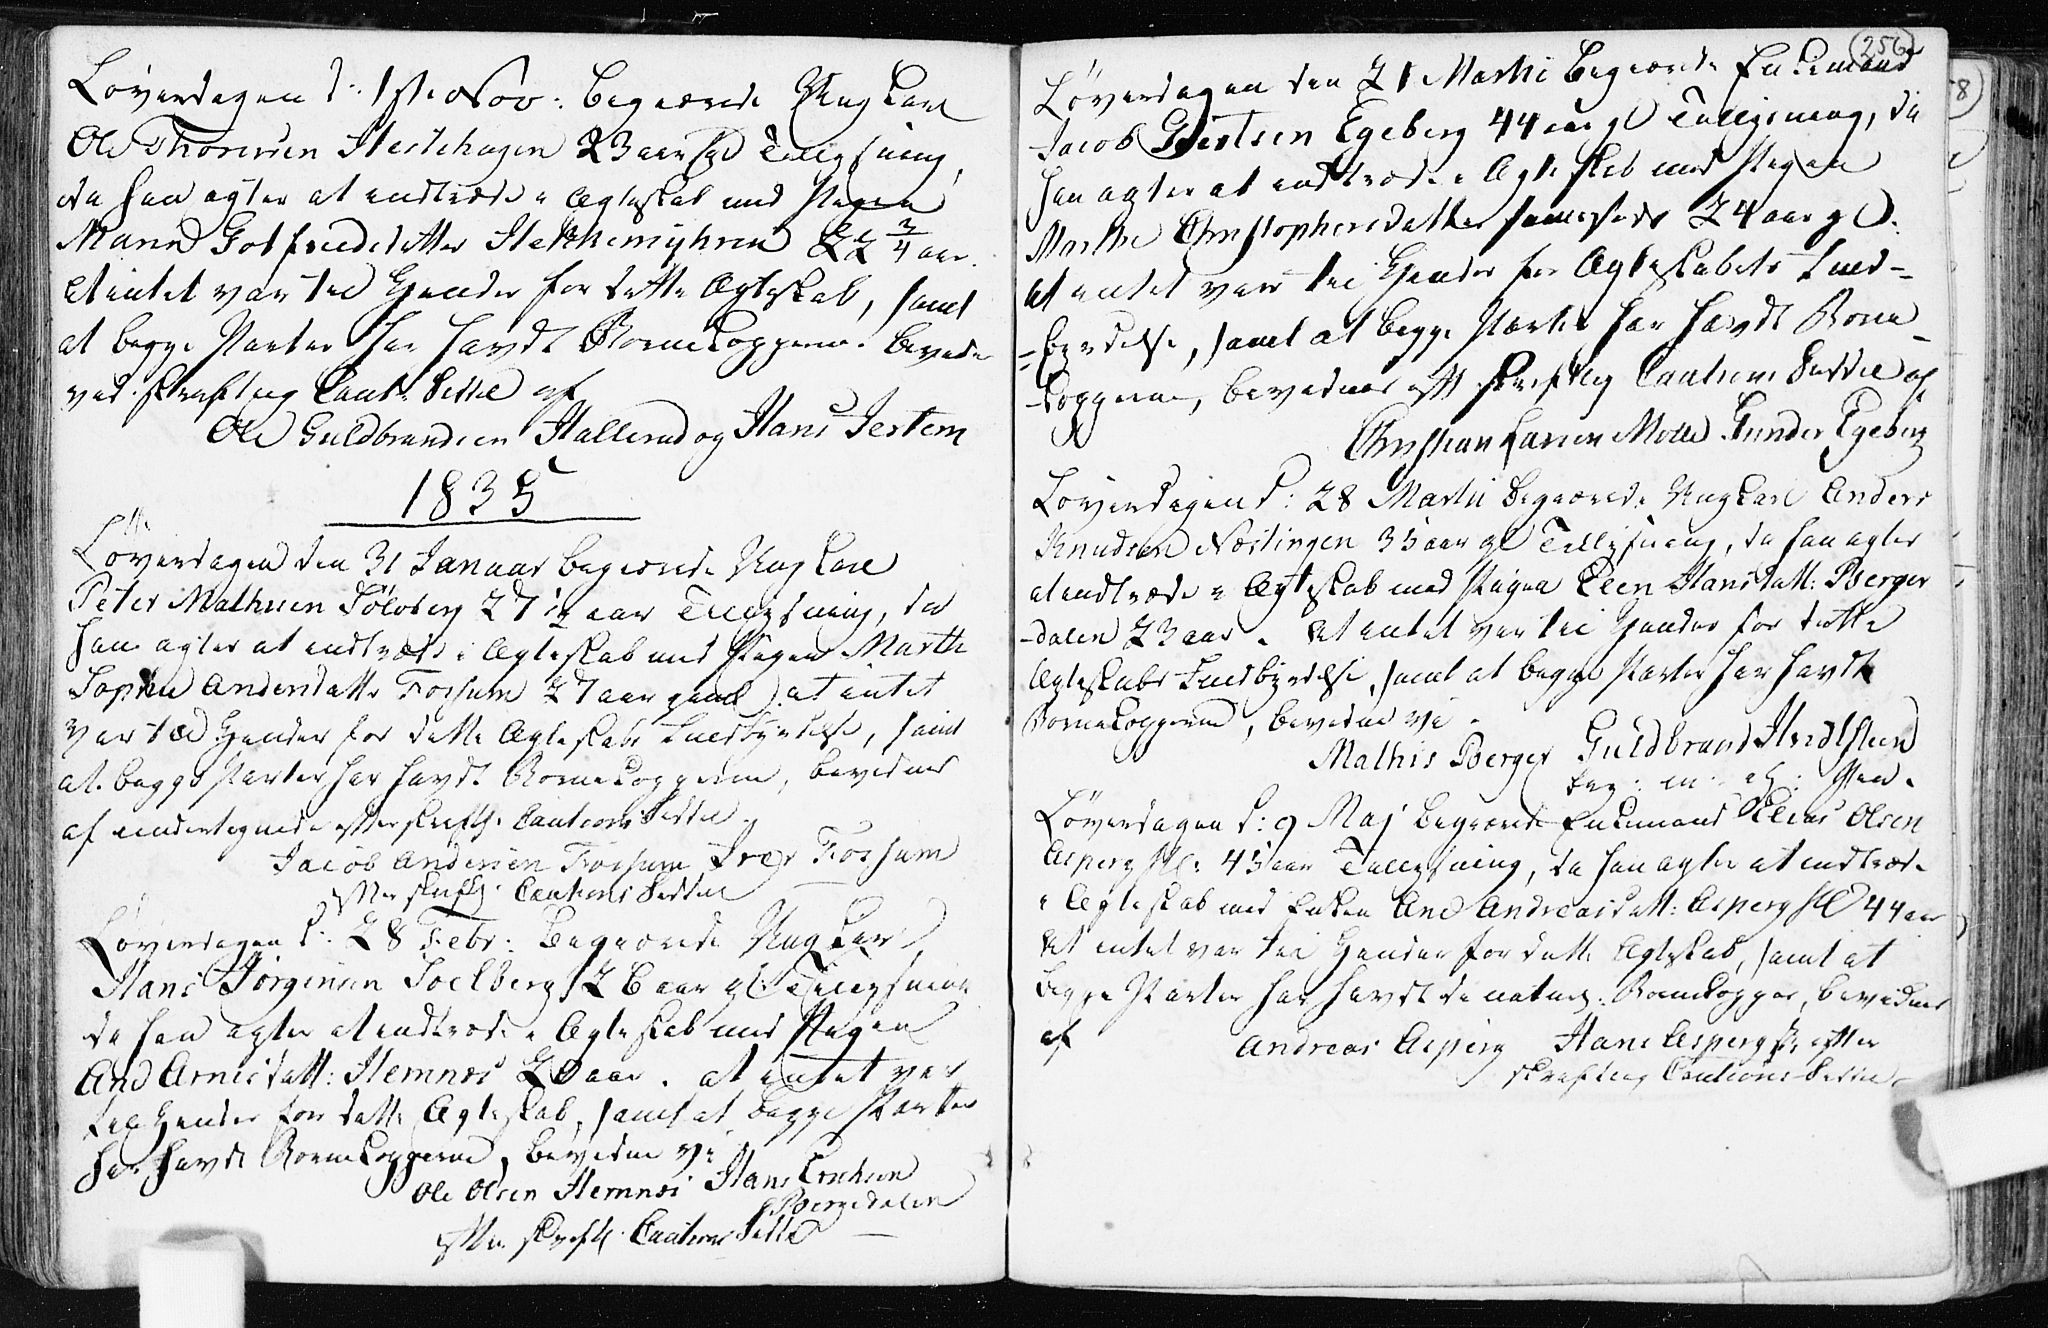 Løverdagen d: 1ste Nov: begjærede Ungkarl
Ole Thoresen Hestehagen 23 aar gl Tillysning,
da han agter at indtræde i Ægteskab med Pigen
Maren Gotfriedsdatter 22 3/4 aar.
At intet var til Hinder for dette Ægteskab, samt
at begge Parter har havdt Børnekopperne bevidne
ved skriftlig Caut: Seddel af
Ole Guldbrandsen Hallerud og Hans Jertem
1835
Løverdagen den 31 Januar begjærede Ungkarl
Peter Mathisen Sølvberg 27 1/2 aar Tillysning, da
han agter at indtræde i Ægteskab med Pigen Marthe
Sophie Andersdatter Fossum 27 aar gaml. at intet
var til Hinder for dette Ægteskabs Fuldbyrdelse, samt
at begge Parter har havdt Børnekopperne, bevidnes
af undertegnede efter skriftl. Cautions Seddel.
Jacob Andersen Fossum Iver Fossum
efter skriftl. Cautions Seddel
Løverdagen d: 28 Febr: begjærede Ungkarl
Hans Jørgensen Soelberg 26 aar gl: Tillysning
da han agter at indtræde i Ægteskab med Pigen
Ane Arnesdatt: Hemnes 20 aar. at intet var
til Hinder for dette Ægteskab, samt at begge Parter
har havdt Børnekopperne, bevidne vi
Ole Olsen Hemnes Hans Erichsen
Bergsdalen
efter skriftl. Cautions Seddel
256
Løverdagen den 21 Martii begjærede Enkemand
Jacob Gertsen Egeberg 44 aar gl Tillysning, da
han agter at indtræde i Ægteskab med Pigen
Marthe Christophersdatter sammesteds 24 aar gl.
at intet var til Hinder for Ægteskabets Fuld-
-byrdelse, samt at begge Parter har havdt Børne-
-kopperne, bevidnes efter skriftlig Cautions Seddel af
Christian Larsen Molle Gunder Egeberg
Løverdagen d: 28 Martii begjærede Ungkarl Anders
Knudsen Næstingen 35 aar gl Tillysning, da han agter
at indtræde i Ægteskab med Pigen Eleen Hansdatt: Berger
-dalen 23 aar. At intet var til Hinder for dette
Ægteskabs Fuldbyrdelse, samt at begge Parter har havdt
Børnekopperne, bevidne vi.
Mathis Berger Guldbrand Hvidsteen
Løverdagen d: 9 Maj begjærede Enkemand Elias Olsen
Asperg 43 aar Tillysning, da han agter at indtræde
i Ægteskab med Enken Ane Andreasdatt: Asperg 44 aar
At intet var til Hinder for dette Ægteskab, samt at
begge Parter har havdt de naturl: Børnekopper, bevidnes
af Andreas Asperg Hans Asperg efter
skriftlig Cautions Seddel